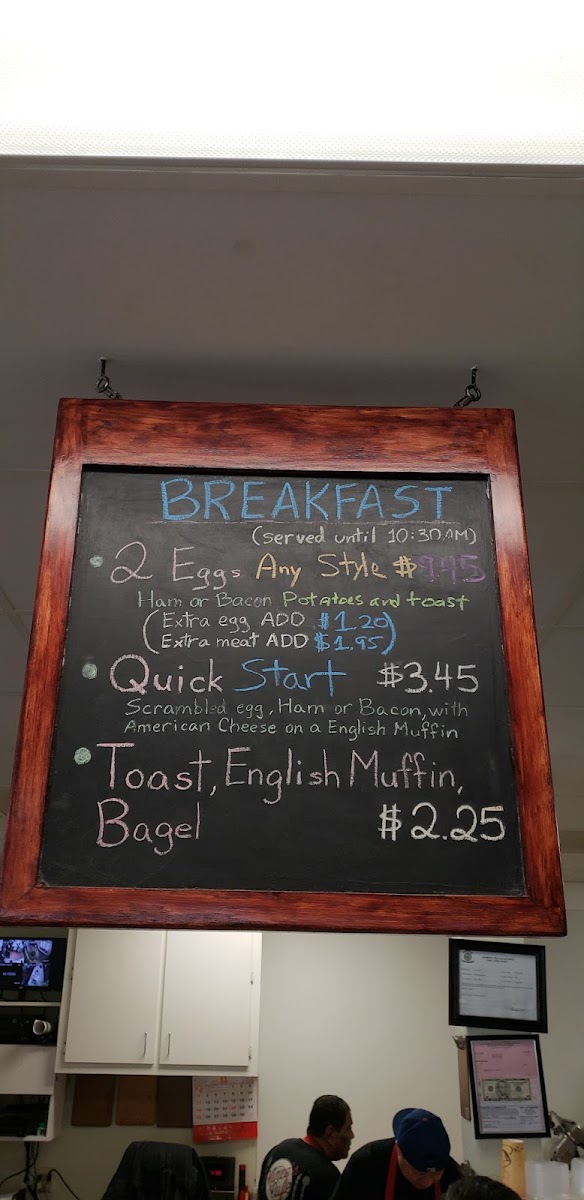 BREAKFAST
(served until 10:30AM)
2 Eggs Any Style $9.45
Ham or Bacon Potatoes and toast
(Extra egg ADD $1.20)
(Extra meat ADD $1.95)
Quick Start $3.45
Scrambled egg, Ham or Bacon, with
American Cheese on a English Muffin
Toast, English Muffin,
Bagel $2.25